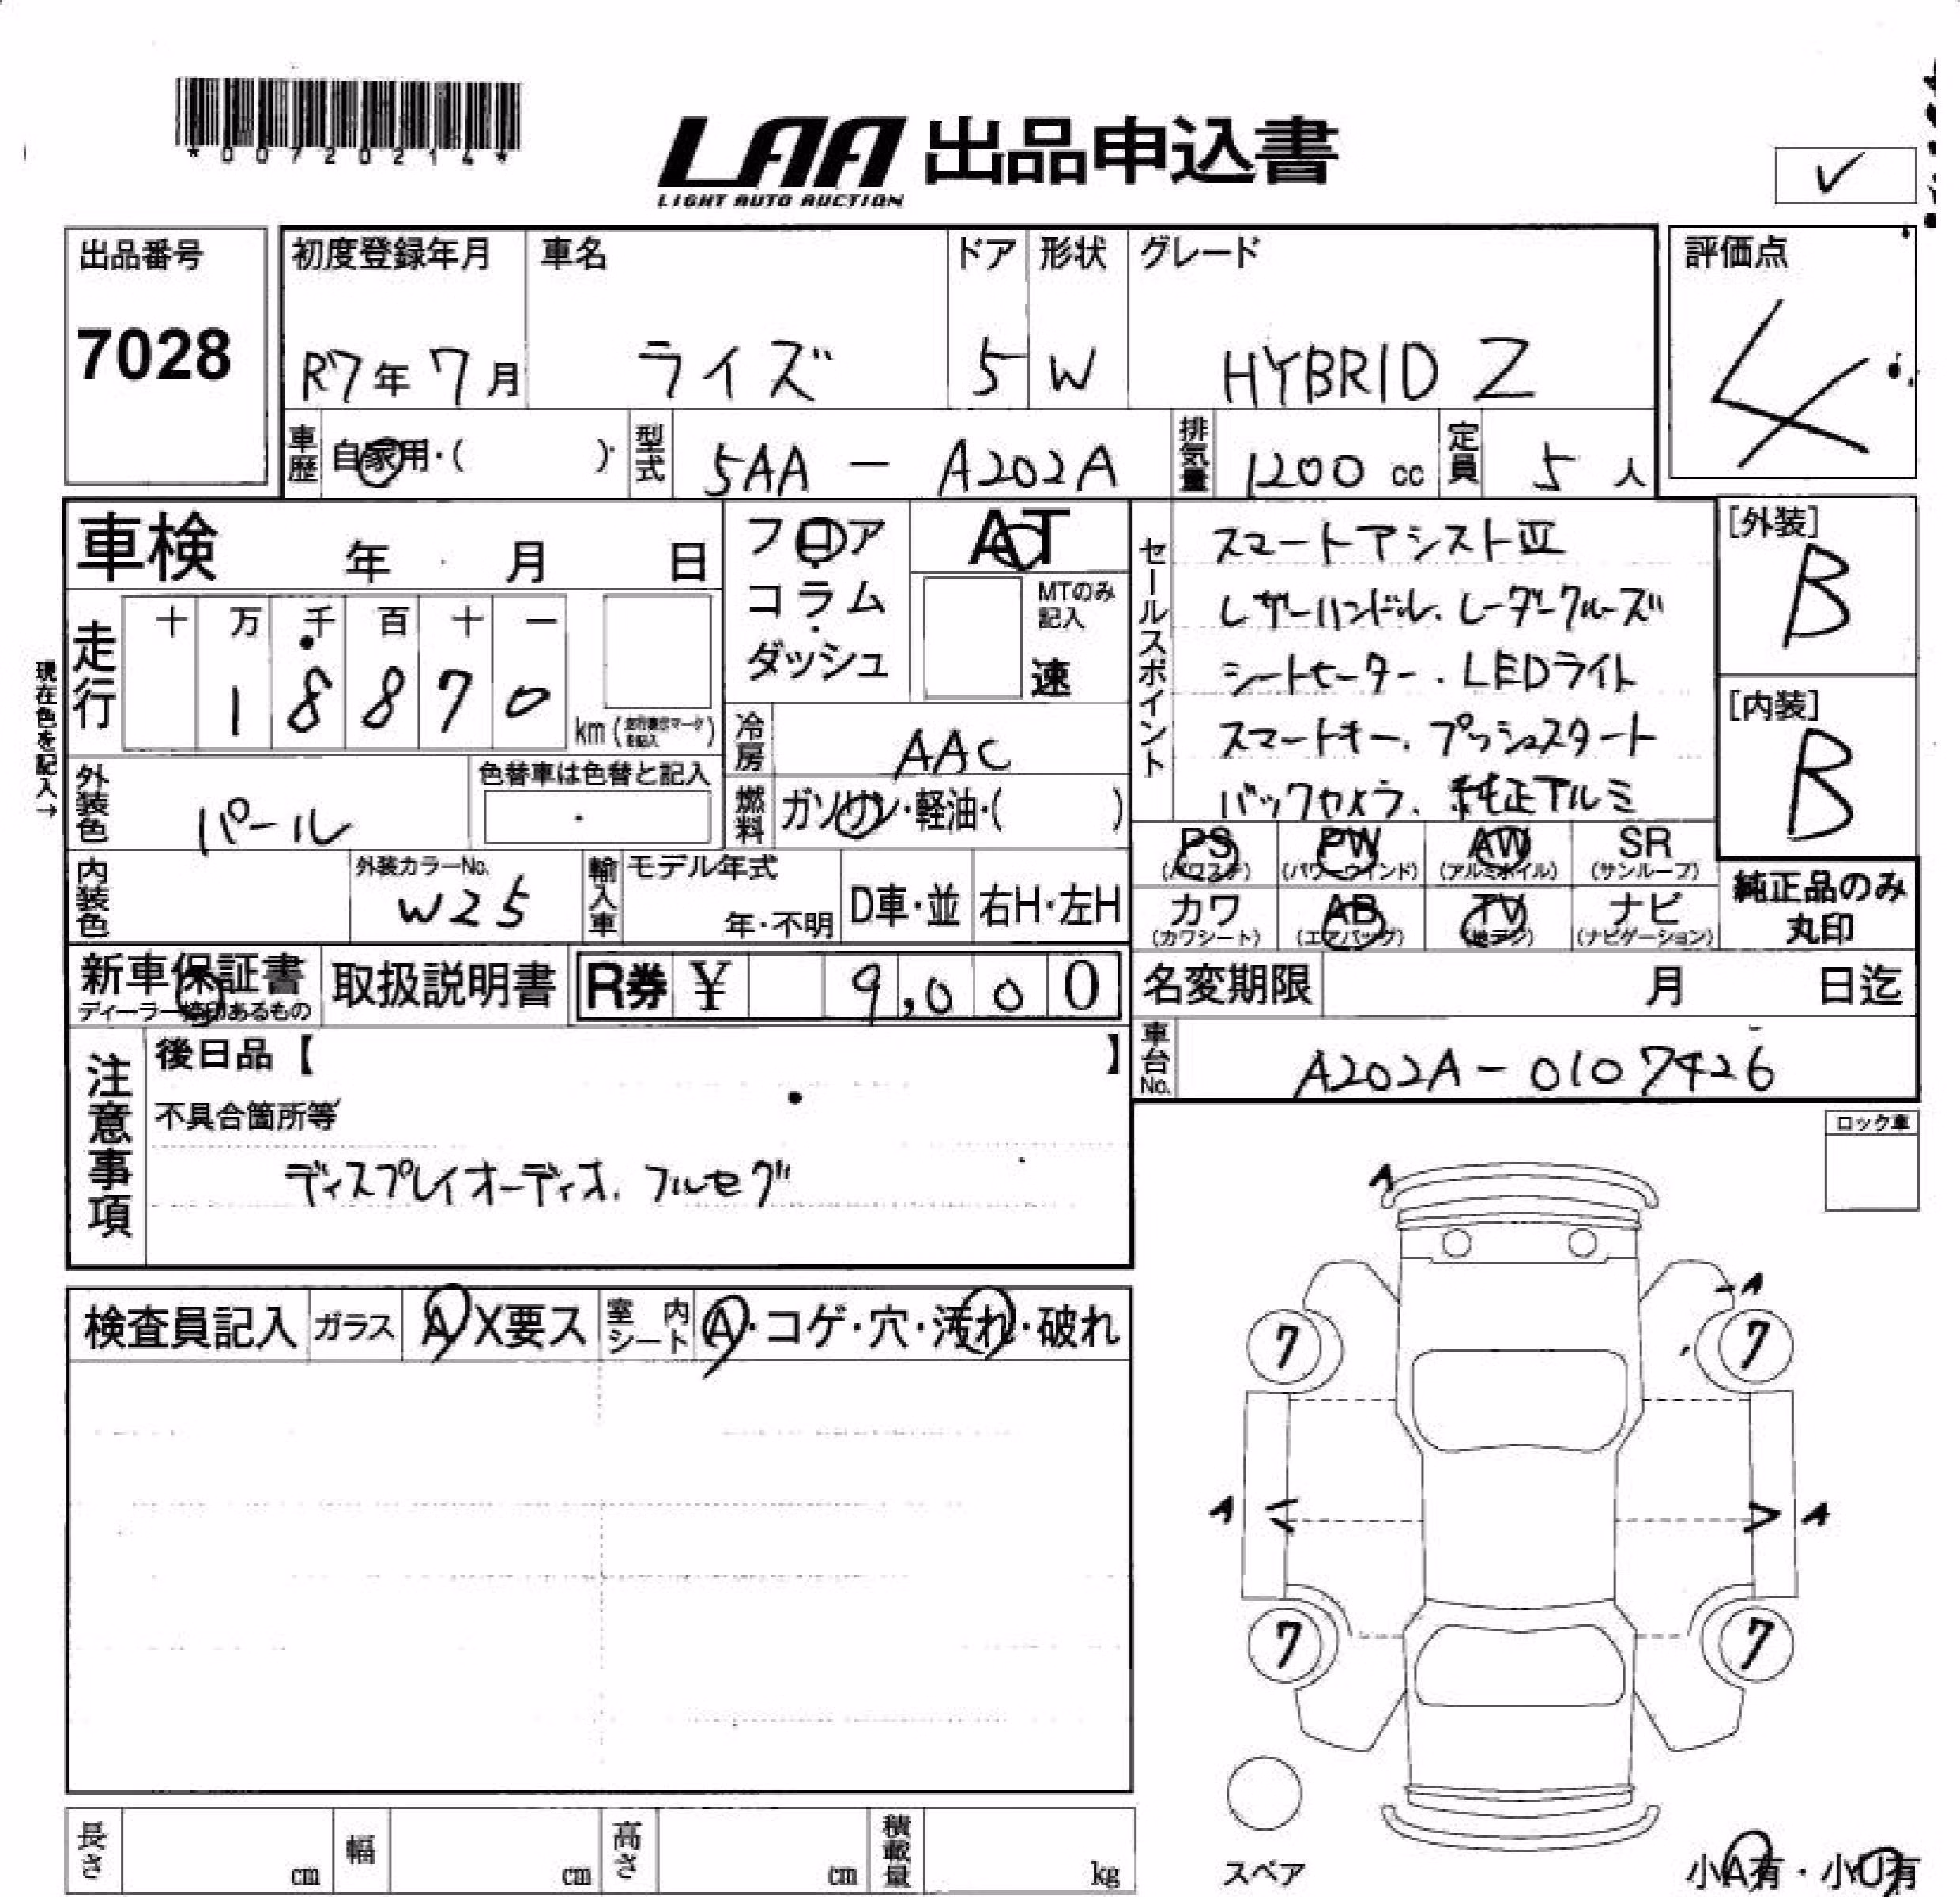 *00720214*
LAA 出品申込書
LIGHT AUTO AUCTION
✓
出品番号 初度登録年月 車名 ドア 形状 グレード 評価点
7028 R7年 7月 ライズ 5 W HYBRID Z 4
車歴 自家用・( ) 型式 5AA - A202A 排気量 1200 cc 定員 5 人
車検 年 月 日
フロア AT
コラム MTのみ記入
ダッシュ 速
現在色を記入→
走行 十 万 千 百 十 一
1 8 8 7 0 km
冷房 AAC
外装色 パール 色替車は色替と記入
燃料 ガソリン・軽油・( )
セールスポイント
スマートアシストⅢ
レザーハンドル、レーダークルーズ
シートヒーター、LEDライト
スマートキー、プッシュスタート
バックカメラ、純正アルミ
[外装]
B
[内装]
B
内装色 外装カラーNo. W25 輸入車 モデル年式 年・不明 D車・並 右H・左H
PS (パワステ) PW (パワーウインド) AW (アルミホイル) SR (サンルーフ)
カワ (カワシート) AB (エアバッグ) TV (地デジ) ナビ (ナビゲーション)
純正品のみ
丸印
新車保証書 取扱説明書 R券 ¥ 9,000 名変期限 月 日迄
ディーラー捺印あるもの
車台No. A202A-0107426
注意事項
後日品【 】
不具合箇所等
ディスプレイオーディオ、フルセグ
ロック車
検査員記入 ガラス A X要ス 室内シート A・コゲ・穴・汚れ・破れ
A
A
7 7
A < > A
7 7
スペア
小A有・小U有
長さ cm 幅 cm 高さ cm 積載量 kg